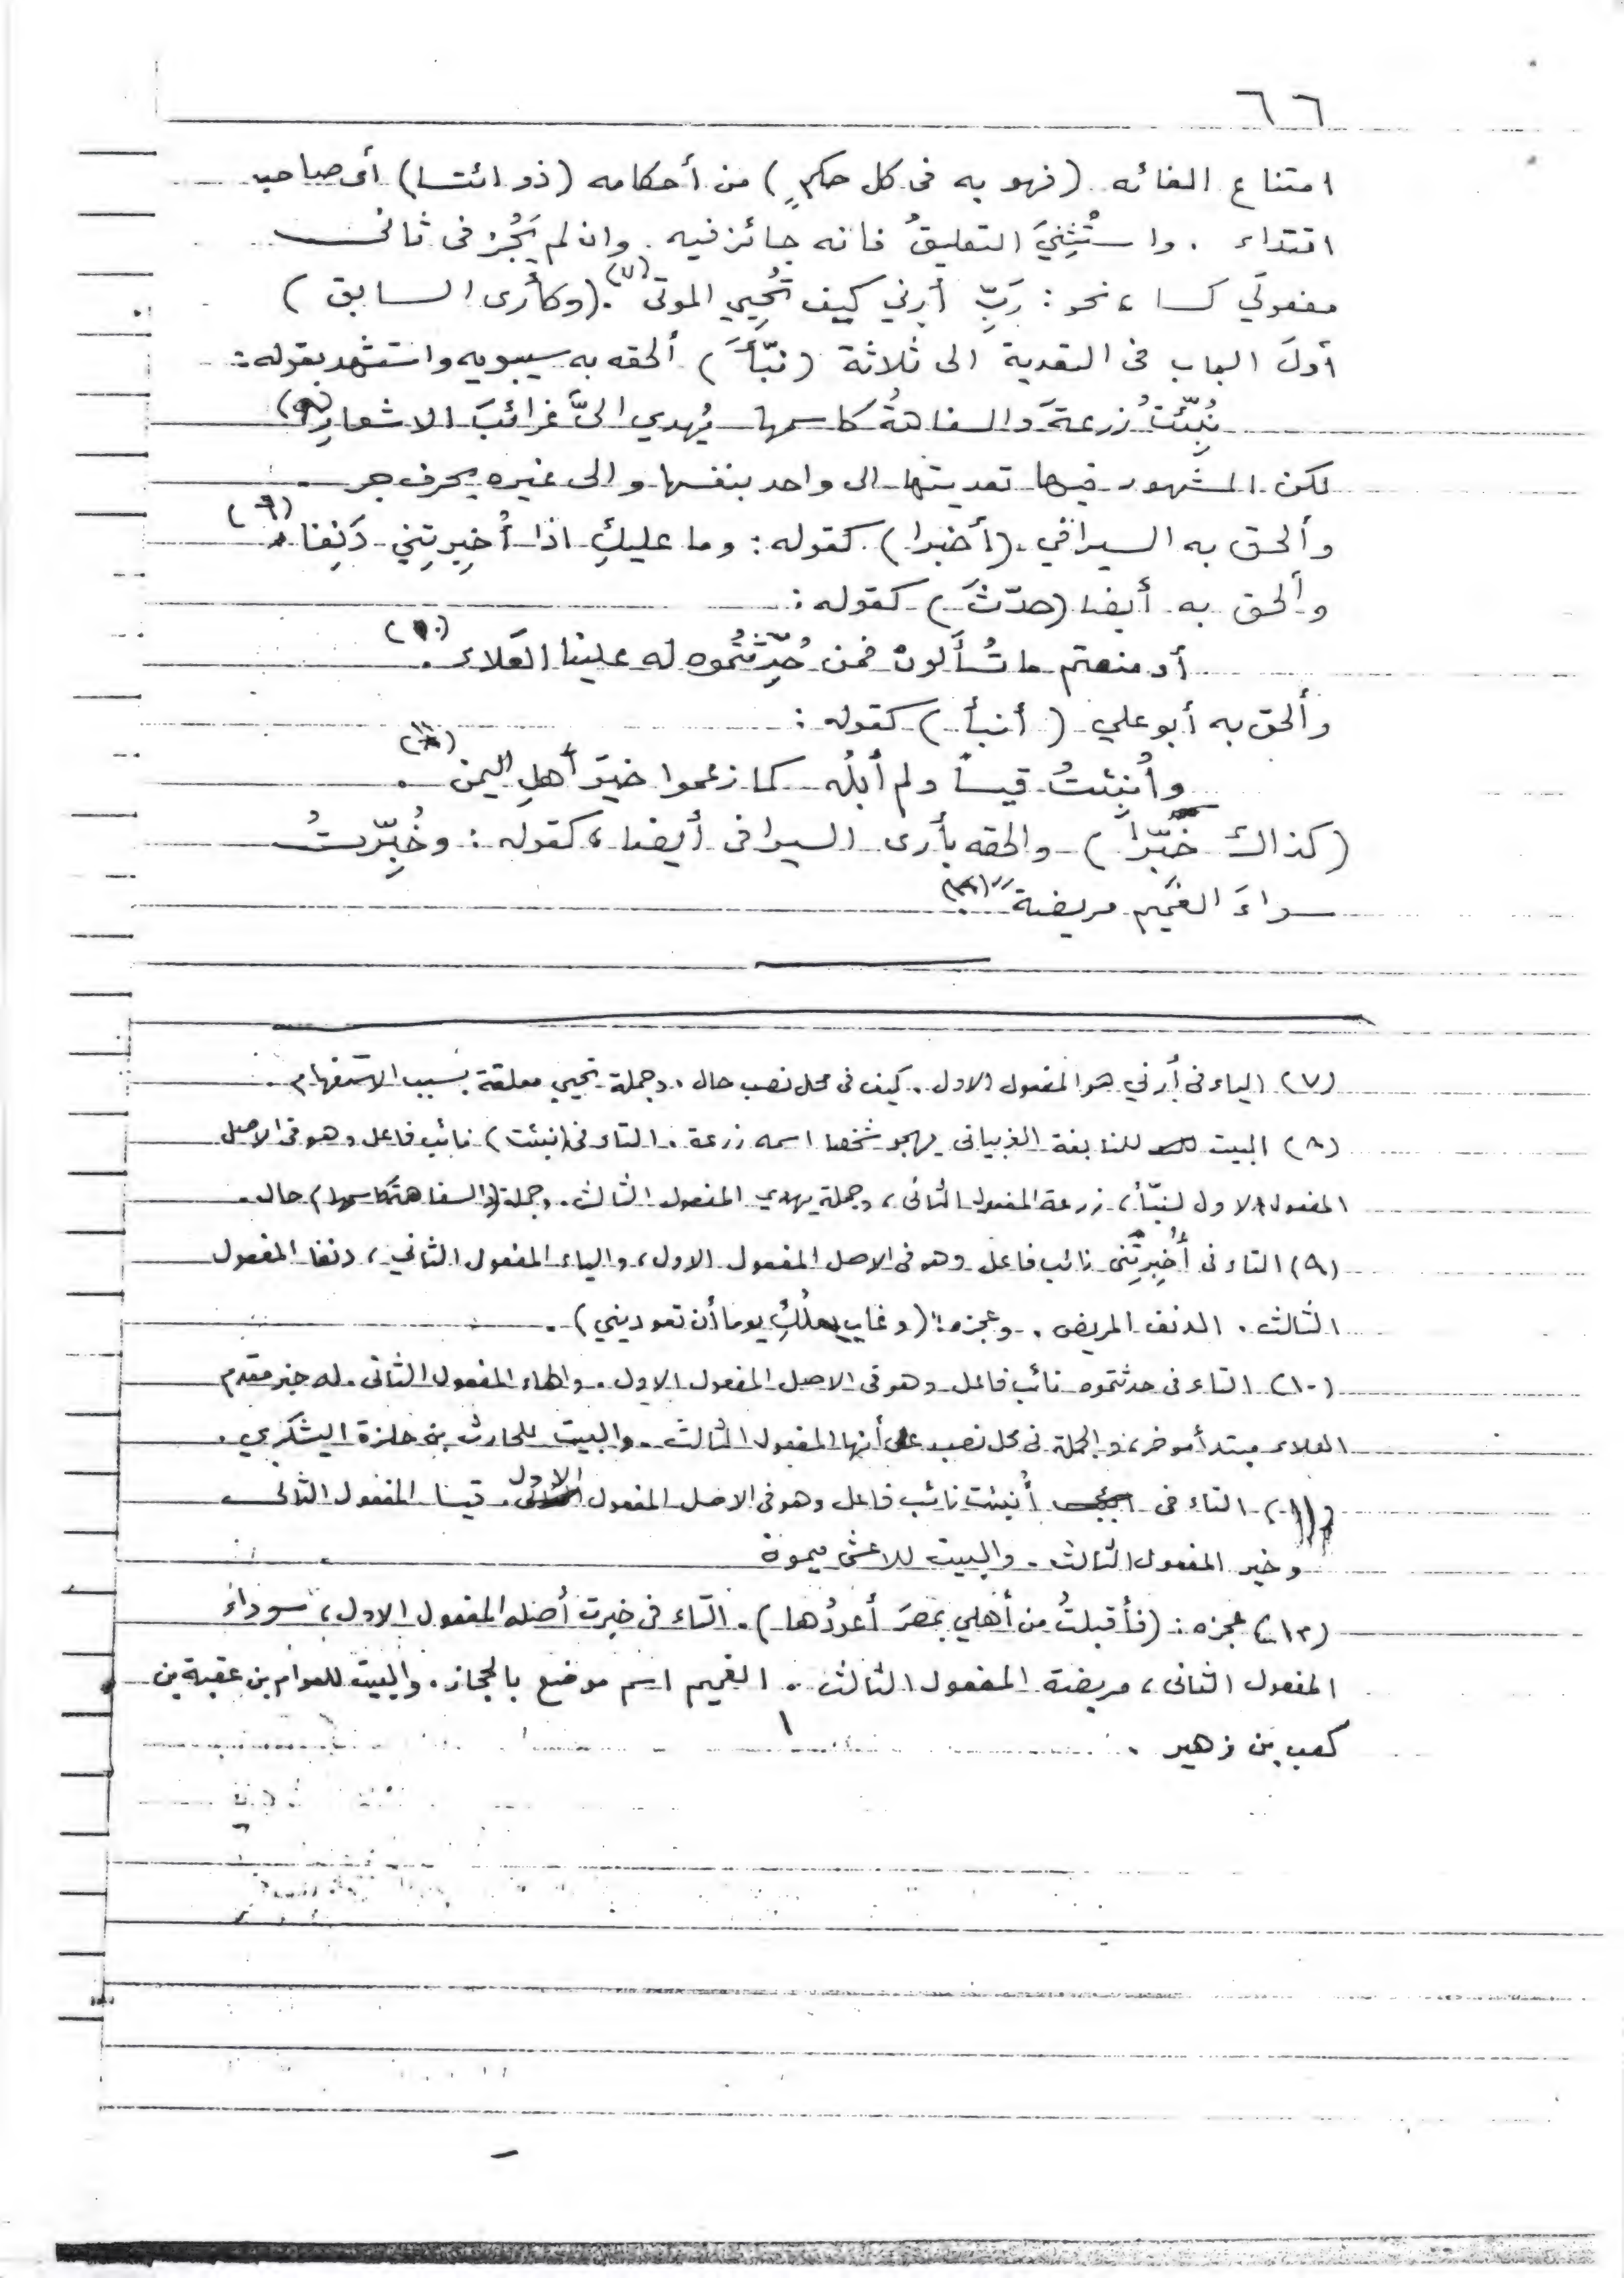 ٦٦
امتناع الغائه (فهو به فى كل حكمٍ) من أحكامه (ذو ائتسا) أى صاحب
اقتداء . واستُثنِيَ التعليقُ فانه جائز فيه . وان لم يَجُز فى ثانى
مفعولَي كسا ، نحو : رَبِّ أرني كيف تُحيِي الموتى (٧) . (وكأرى السابق)
أولَ الباب فى التعدية الى ثلاثة (نبّأَ) ألحقه به سيبويه واستشهد بقوله :
نُبِّئتُ زرعةَ والسفاهةُ كاسمها يُهدي اليَّ غرائبَ الاشعارِ (٨)
لكن المشهور فيها تعديتها الى واحد بنفسها والى غيره بحرف جر .
وألحق به السيرافي (أخبرا) كقوله : وما عليكِ اذا أُخبِرتِني دَنِفا (٩)
وألحق به أيضا (حدّثَ) كقوله :
أو منعتم ما تُسأَلونَ فمن حُدِّثتُموه له علينا العَلاء . (١٠)
وألحق به أبو علي (أنبأ) كقوله :
وأُنبِئتُ قيساً ولم أبلُه كما زعموا خيرَ أهلِ اليمن . (١١)
(كذاك خبّرا) والحقه بأرى السيرافى أيضا ، كقوله : وخُبِّرتُ
سوداءَ الغَميم مريضة (١٢)
(٧) الياء فى أرني هو المفعول الاول . كيف فى محل نصب حال . وجملة تحيي معلقة بسبب الاستفهام .
(٨) البيت للنابغة الذبيانى يهجو شخصا اسمه زرعة . التاء فى (نبئت) نائب فاعل وهو فى الاصل
المفعول الاول لنبّأ ، زرعة المفعول الثانى ، وجملة يهدي المفعول الثالث . وجملة (والسفاهة كاسمها) حال .
(٩) التاء فى أُخبِرتِنى نائب فاعل وهو فى الاصل المفعول الاول ، والياء المفعول الثاني ، دنفا المفعول
الثالث . الدنف المريض . وعجزه : (وغاب بعلُكِ يوما أن تعوديني) .
(١٠) التاء فى حدثتموه نائب فاعل وهو فى الاصل المفعول الاول . والهاء المفعول الثانى . له خبر مقدم
العلاء مبتدأ مؤخر ، والجملة فى محل نصب على أنها المفعول الثالث . والبيت للحارث بن حلزة اليشكري .
(١١) التاء فى أُنبئت نائب فاعل وهو فى الاصل المفعول الاول . قيسا المفعول الثانى
وخير المفعول الثالث . والبيت للاعشى ميمون
(١٢) عجزه : (فأقبلتُ من أهلي بمصرَ أعودُها) . التاء فى خبرت أصله المفعول الاول ، سوداءَ
المفعول الثانى ، مريضة المفعول الثالث . الغميم اسم موضع بالحجاز . والبيت للعوام بن عقبة بن
كعب بن زهير .